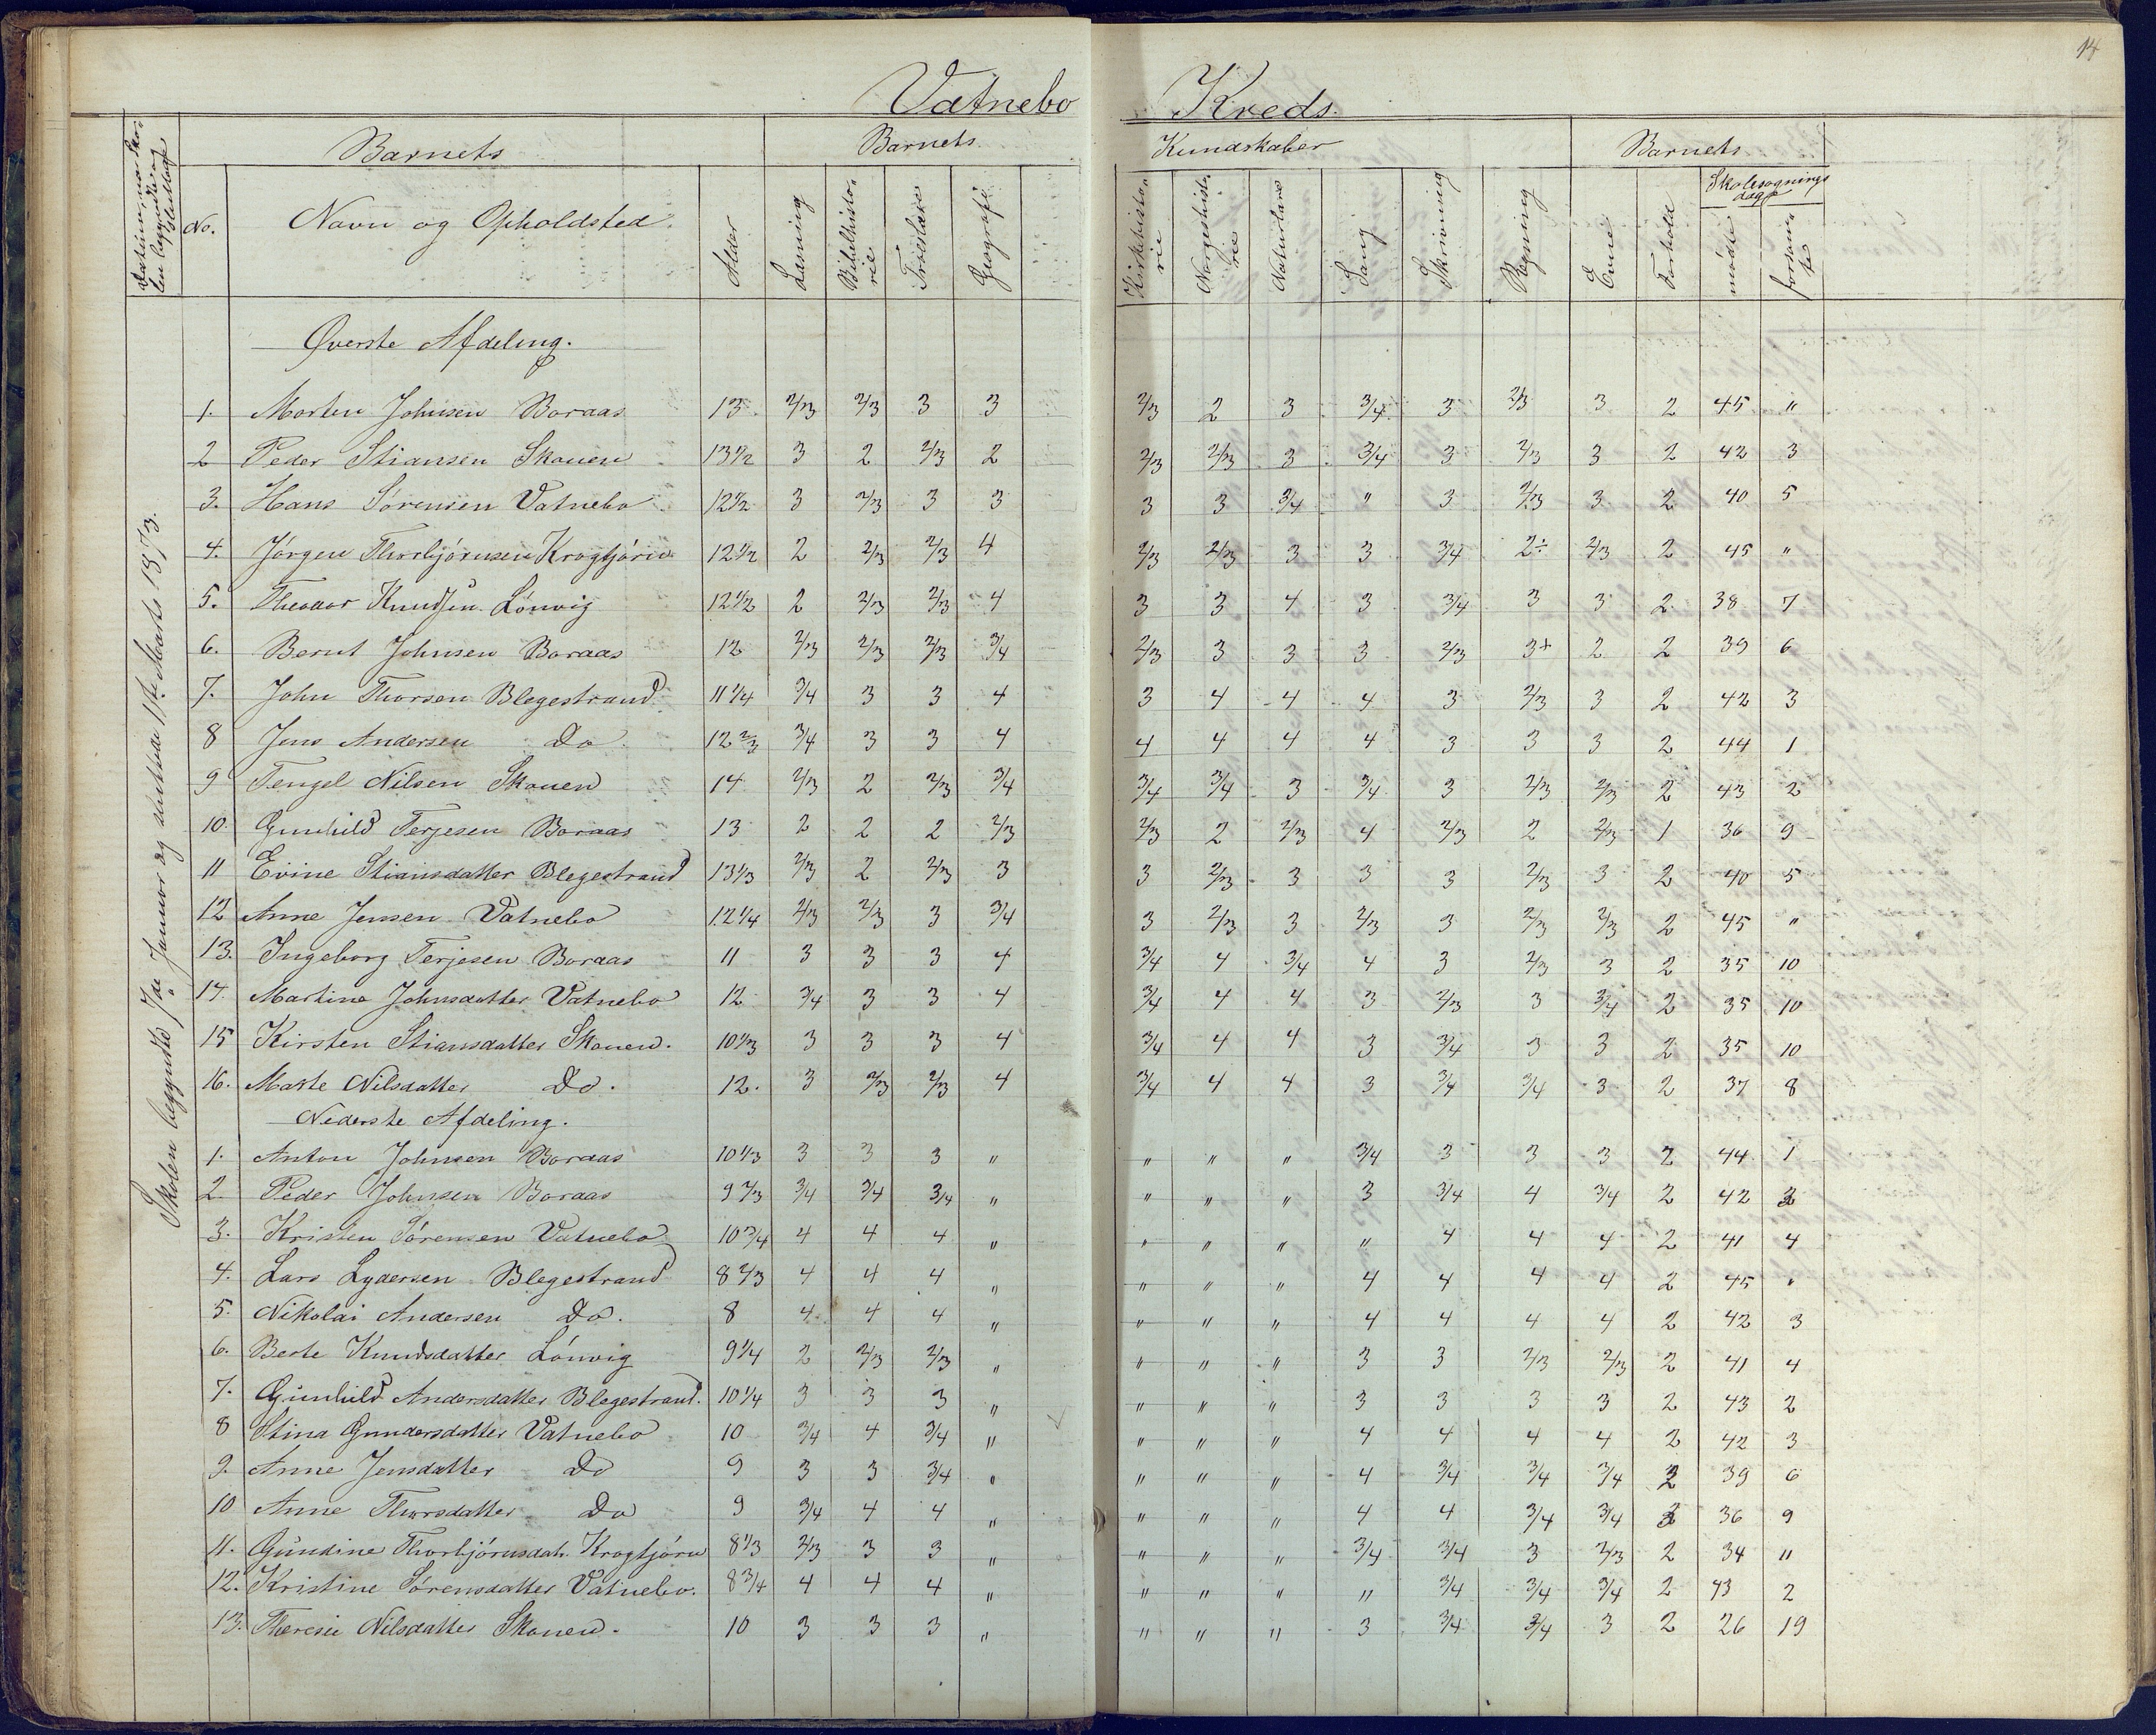 14
Vatnebo Kreds.
Datum, naar Skolen begyndte og sluttede
Barnets
Barnets Kundskaber
Barnets
No.
Navn og Opholdsted
Alder
Læsning
Bibelhistorie
Troeslære
Geografi
Kirkehistorie
Norgeshistorie
Naturlære
Sang
Skrivning
Regning
Evne
Forhold
Skolesøgningsdage
mødte
forsømte
Skolen begyndte 7de Januar og sluttede 11te Marts 1873.
Øverste Afdeling.
1. Morten Johnsen Boraas 13 2/3 2/3 3 3 2/3 2 3 3/4 3 2/3 3 2 45 "
2 Peder Stiansen Skouen 13 1/2 3 2 2/3 2 2/3 2/3 3 3/4 3 2/3 3 2 42 3
3. Hans Sørensen Vatnebo 12 1/2 3 2/3 3 3 3 3 3/4 " 3 2/3 3 2 40 5
4. Jørgen Thorbjørnsen Krogtjørn 12 1/2 2 2/3 2/3 4 2/3 2/3 3 3 3/4 2÷ 2/3 2 45 "
5. Theodor Knudsen Lønvig 12 1/2 2 2/3 2/3 4 3 3 4 3 3/4 3 3 2 38 7
6. Bernt Johnsen Boraas 12 2/3 2/3 2/3 3/4 2/3 3 3 3 2/3 3+ 2 2 39 6
7. John Thorsen Blegestrand 11 1/4 3/4 3 3 4 3 4 4 4 3 2/3 3 2 42 3
8 Jens Andersen Do 12 2/3 3/4 3 3 4 4 4 4 4 3 3 3 2 44 1
9 Tengel Nilsen Skouen 14 2/3 2 2/3 3/4 3/4 3/4 3 3/4 3 2/3 2/3 2 43 2
10. Gunhild Terjesen Boraas 13 2 2 2 2/3 2/3 2 2/3 4 2/3 2 2/3 1 36 9
11 Evine Stiansdatter Blegestrand 13 1/3 2/3 2 2/3 3 3 2/3 3 3 3 2/3 3 2 40 5
12 Anne Jensen Vatnebo 12 1/4 2/3 2/3 3 3/4 3 2/3 3 2/3 3 2/3 2/3 2 45 "
13. Ingeborg Terjesen Boraas 11 3 3 3 4 3/4 4 3/4 4 3 2/3 3 2 35 10
14. Martine Johnsdatter Vatnebo 12 3/4 3 3 4 3/4 4 4 3 2/3 3 3/4 2 35 10
15 Kirsten Stiansdatter Skouen. 10 1/3 3 3 3 4 3/4 4 4 3 3/4 3 3 2 35 10
16. Marte Nilsdatter Do. 12. 3 2/3 2/3 4 3/4 4 4 3 3/4 3/4 3 2 37 8
Nederste Afdeling.
1. Anton Johnsen Boraas 10 1/3 3 3 3 " " " " 3/4 3 3 3 2 44 1
2. Peder Johnsen Boraas 9 2/3 3/4 3/4 3/4 " " " " 3 3/4 4 3/4 2 42 3
3. Kristen Sørensen Vatnebo 10 3/4 4 4 4 " " " " " 4 4 4 2 41 4
4. Lars Lydersen Blegestrand 8 2/3 4 4 4 " " " " 4 4 4 4 2 45 "
5. Nikolai Andersen Do. 8 4 4 4 " " " " 4 4 4 4 2 42 3
6. Berte Knudsdatter Lønvig 9 1/4 2 2/3 2/3 " " " " 3 3 2/3 2/3 2 41 4
7. Gunhild Andersdatter Blegestrand. 10 1/4 3 3 3 " " " " 3 3 3 3 2 43 2
8 Stina Gundersdatter Vatnebo 10 3/4 4 3/4 " " " " 4 4 4 4 2 42 3
9. Anne Jensdatter Do 9 3 3 3/4 " " " " 4 3/4 3/4 3/4 2 39 6
10 Anne Thorsdatter Do 9 3/4 4 4 " " " " 4 4 3/4 3/4 2 36 9
11. Gundine Thorbjørnsdat. Krogtjørn 8 1/3 2/3 3 3 " " " " 3/4 3/4 3 2/3 2 34 11
12. Kristine Sørensdatter Vatnebo. 8 3/4 4 4 4 " " " " " 3/4 3/4 3/4 2 43 2
13. Theresie Nilsdatter Skouen. 10 3 3 3 " " " " 3 3/4 3/4 3 2 26 19